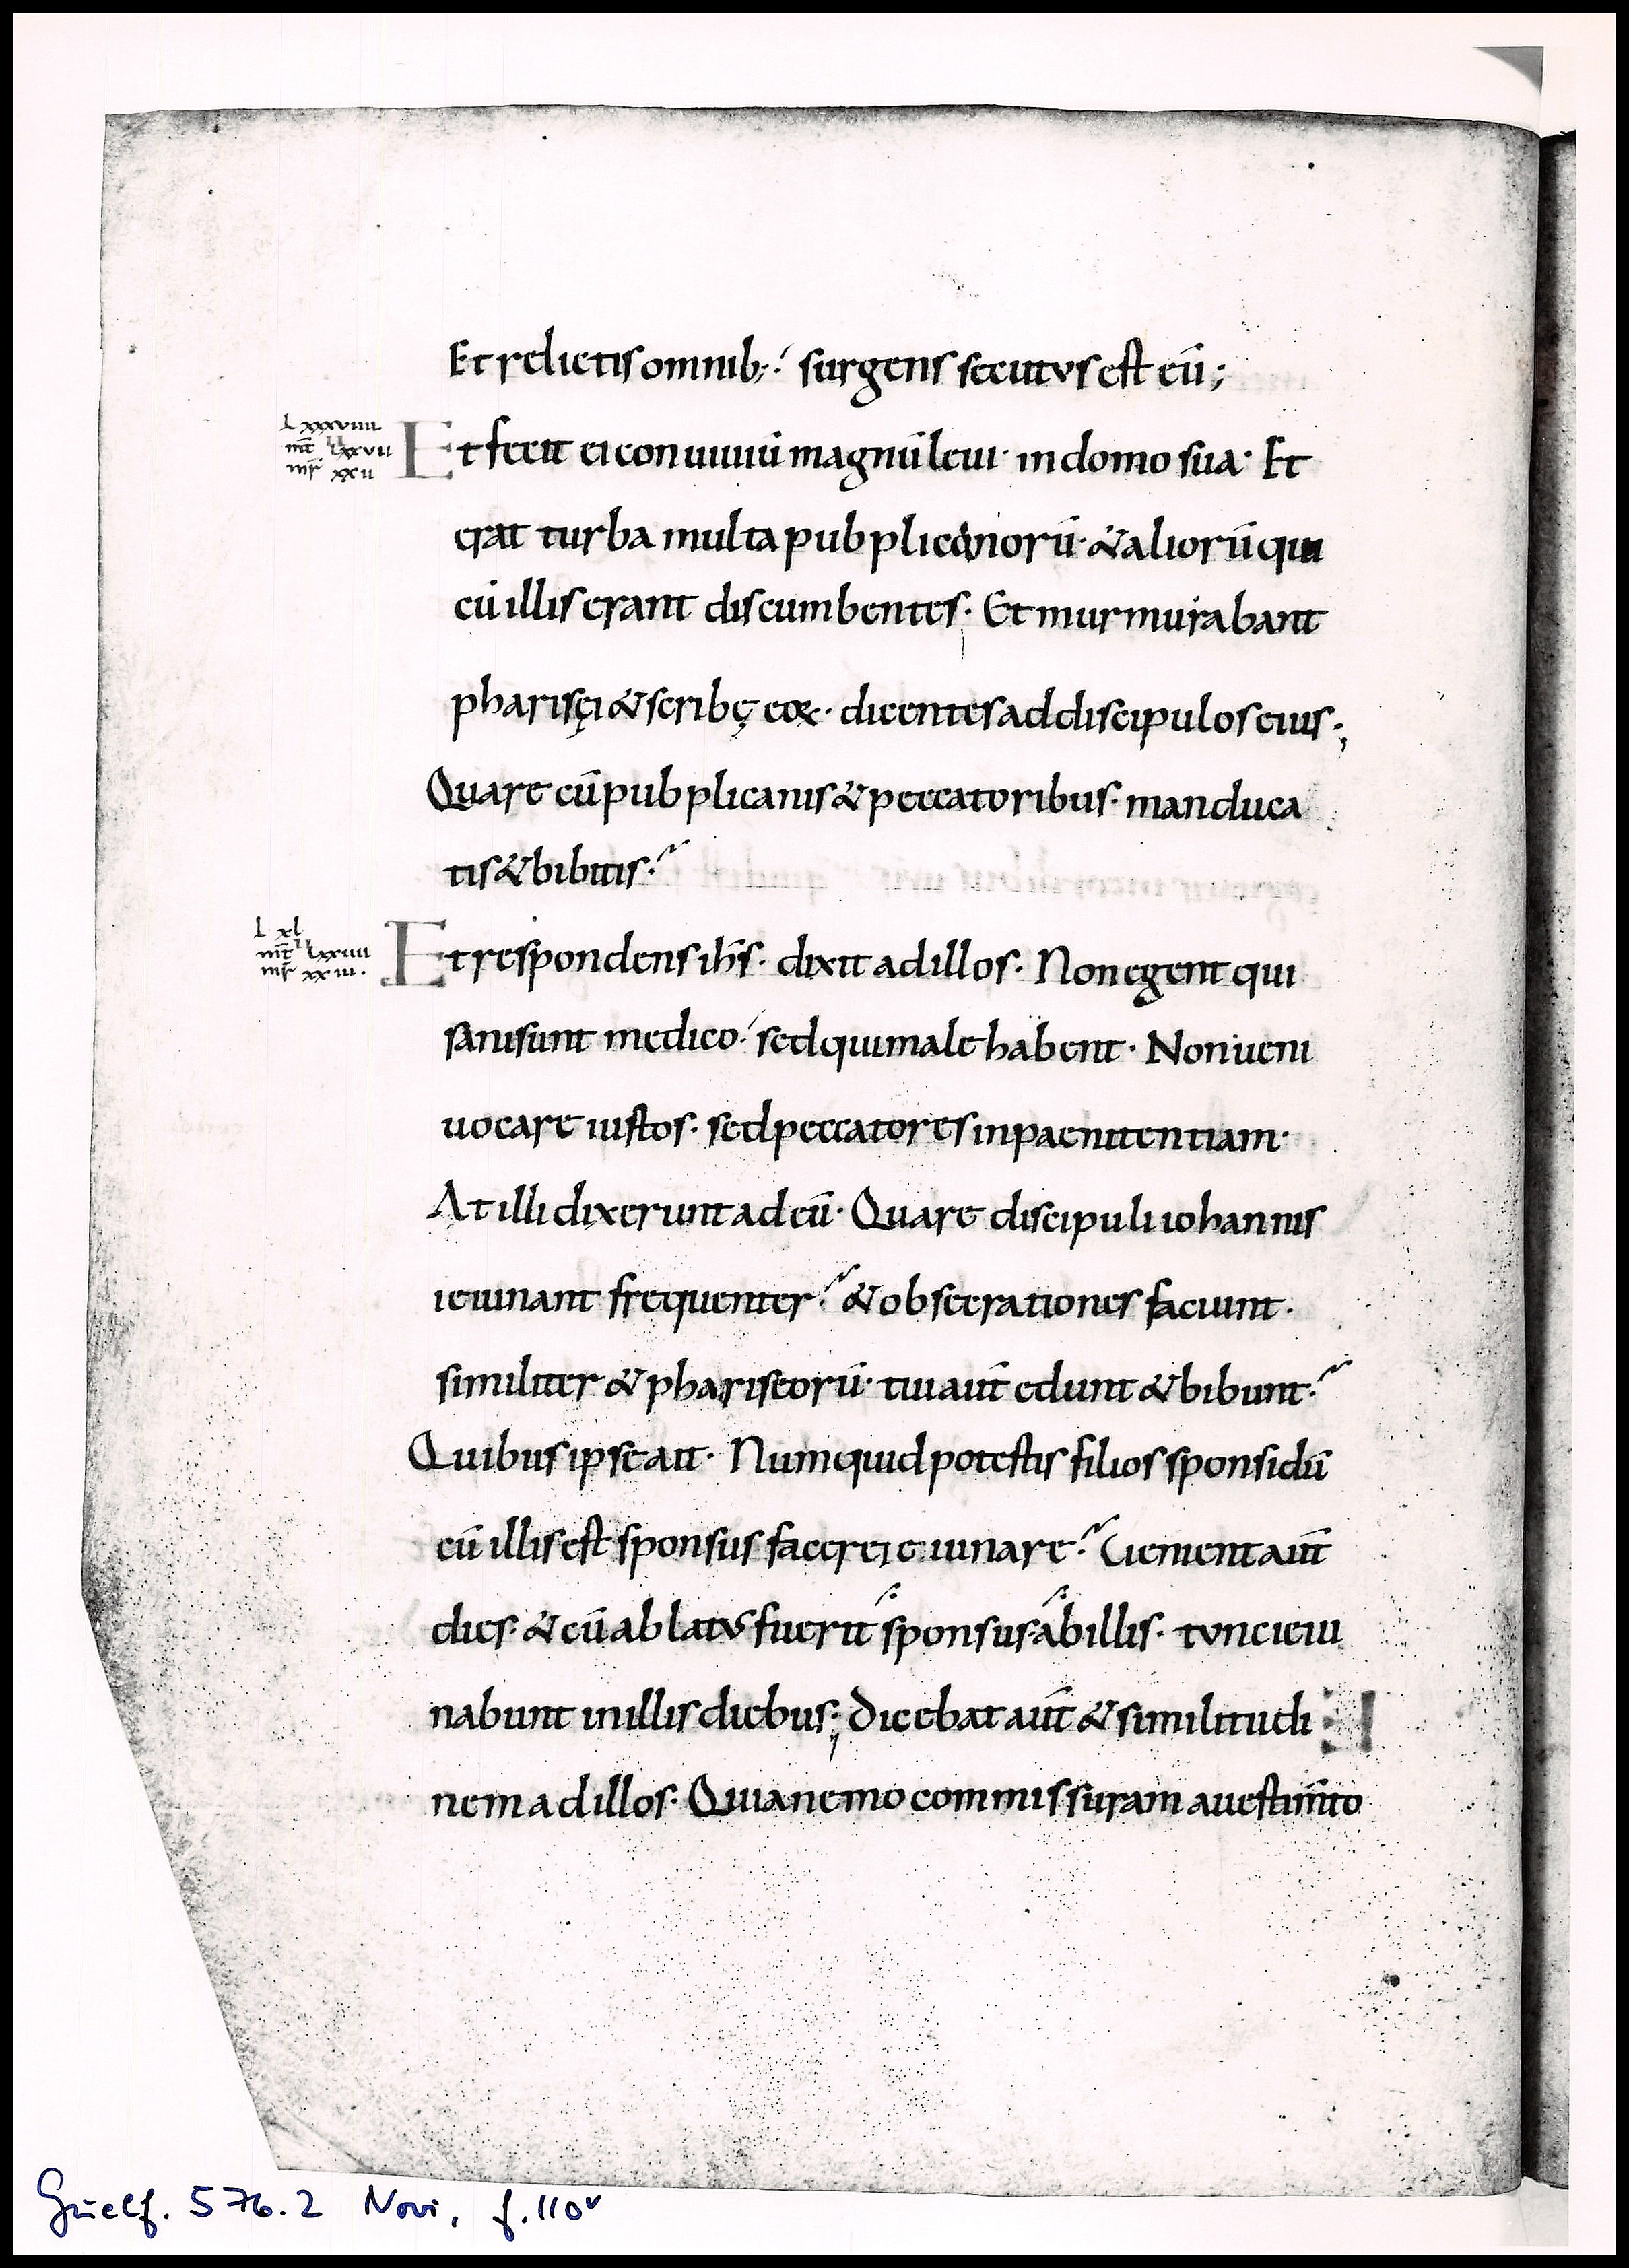 Et relictis omnib; surgens secutus est eū;
L xxxviiii
mt lxxvii
mr xxii
Et fecit ei conuiuiū magnū leui· in domo sua· Et
erat turba multa pubplicanorū· & aliorū qui
cū illis erant discumbentes· Et murmurabant
pharisęi & scribę eoꝝ· dicentes ad discipulos eius·,
Quare cū pubplicanis & peccatoribus· manduca
tis & bibitis·
L xl
mt lxxiii
mr xxiii.
Et respondens ihs̄· dixit ad illos· Non egent qui
sani sunt medico· sed qui male habent· Non ueni
uocare iustos· sed peccatores in paenitentiam·
At illi dixerunt ad eū· Quare discipuli iohannis
ieiunant frequenter· & obsecrationes faciunt·
similiter & phariseorū· tui aut̄ edunt & bibunt·
Quibus ipse ait· Numquid potestis filios sponsi dū
cū illis est sponsus facere ieiunare· Uenient aut̄
dies· & cū ablatus fuerit sponsus ab illis· tunc ieiu
nabunt in illis diebus·, Dicebat aut̄ & similitudi
nem ad illos· Quia nemo commissuram a uestim̄to
Guelf. 576.2 Novi, f. 110v